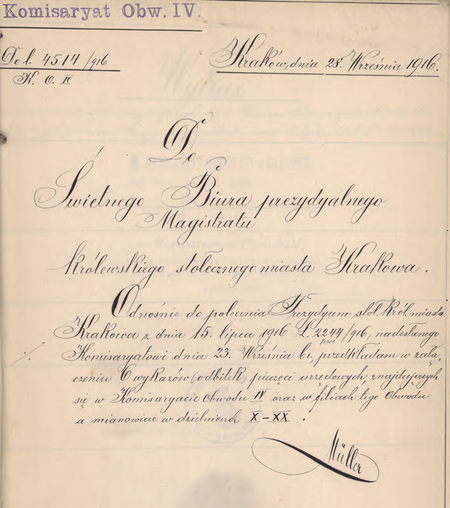 Komisaryat Obw. IV.
Do l. 4514/916
K. O. IV
Kraków, dnia 28. Września 1916.
Do
Świetnego Biura prezydyalnego
Magistratu
królewskiego stołecznego miasta Krakowa.
Odnośnie do polecenia Prezydyum stół. król. miasta
Krakowa z dnia 15. lipca 1916 L. 2244/916, nadesłanego
Komisaryatowi dnia 23. Września b. przedkładam w załą-
czeniu 6 wykazów (odbitek) pieczęci urzędowych, znajdujących
się w Komisaryacie Obwodu IV oraz w filiach tego Obwodu
a mianowicie w dzielnicach X-XX.
Müller